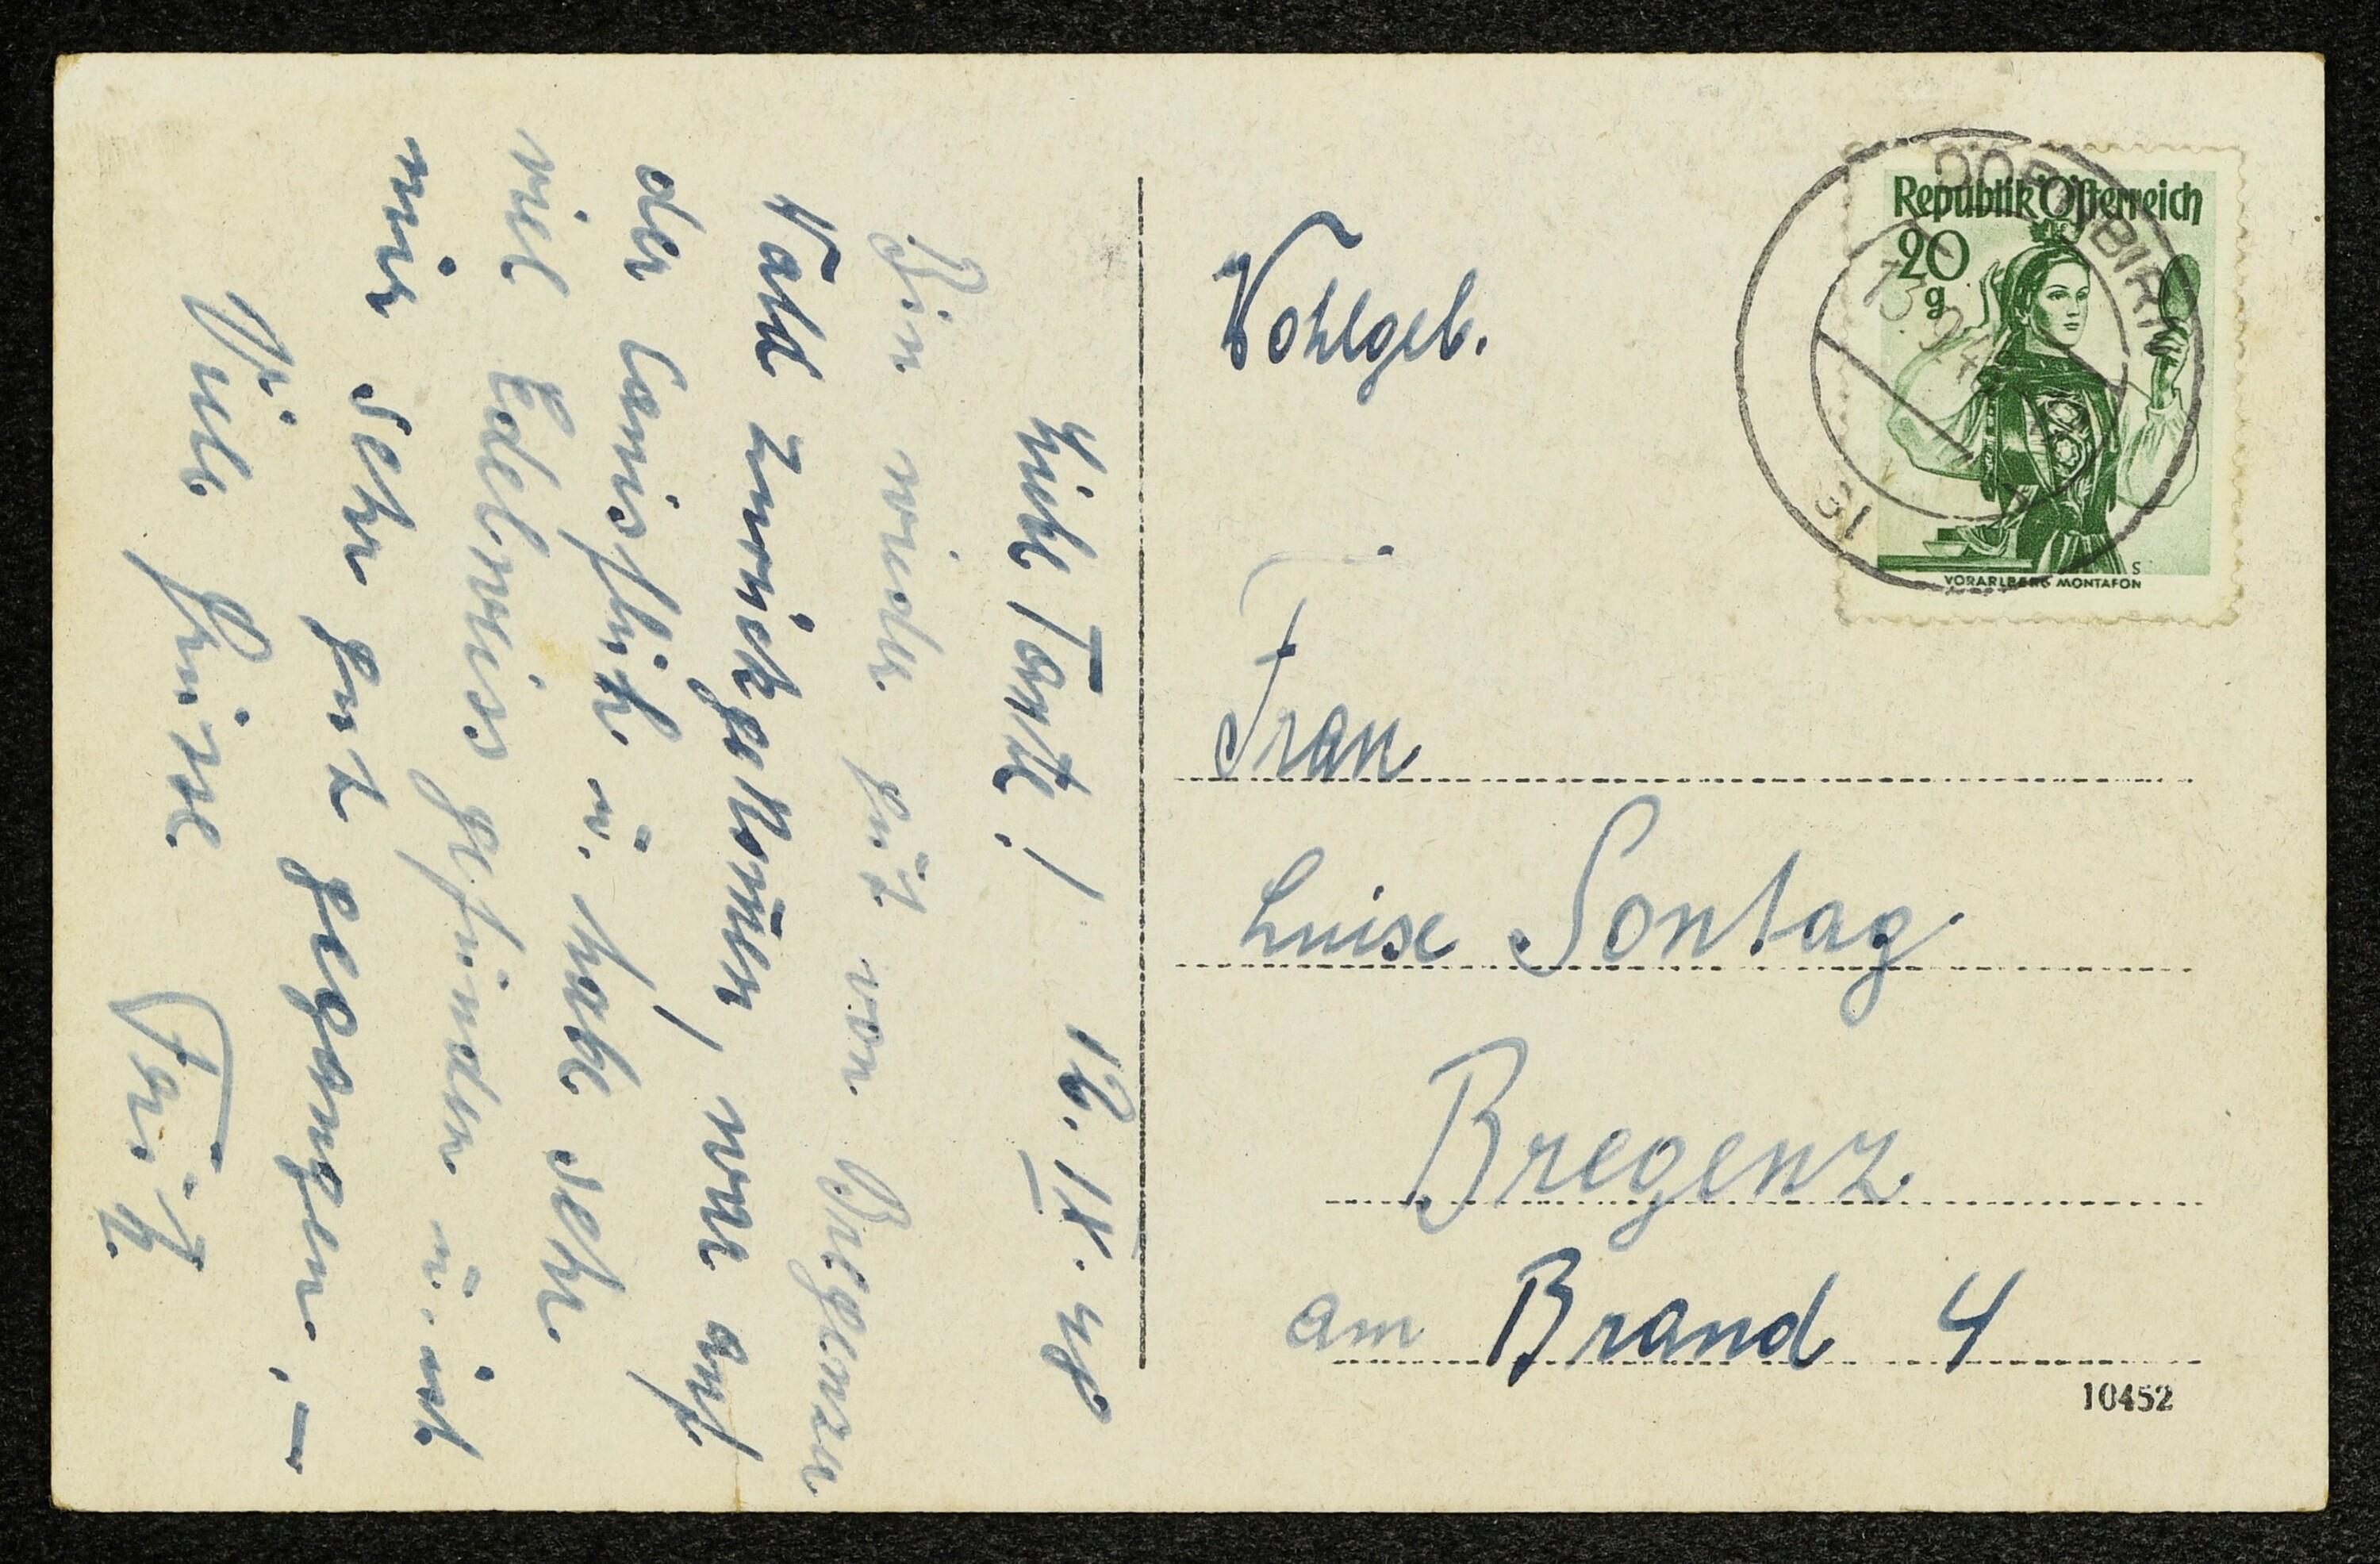 Liebe Tante! 12. IX. 48
Bin wieder gut von Bregenzer
Wald zurückgekom̅en, war auf
der Canisfluh u. habe sehr
viel Edelweiss gefunden u. ist
mir sehr gut gegangen. –
Viele Grüsse Fritz.
Wohlgeb.
Frau
Luise Sontag
Bregenz
am Brand 4
10452
Republik Österreich
20
g
VORARLBERG MONTAFON
DORNBIRN
13.9.48